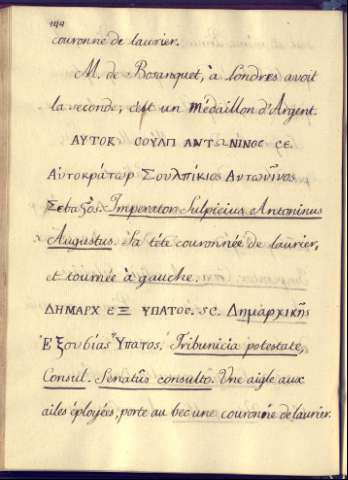 144
couronne de laurier.
M. de Bosanquet, à Londres avoit
la seconde, c'est un médaillon d'Argent.
ΑΥΤΟΚ ϹΟΥΛΠ ΑΝΤΩΝΙΝΟϹ ϹΕ.
Αὐτοκράτωρ Σουλπίκιος Αντωνῖνος
Σεβαςος. Imperator Sulpicius Antoninus
Augustus. Sa tête couronnée de laurier,
et tournée à gauche.
ΔΗΜΑΡΧ ΕΞ ΥΠΑΤΟϹ. SC. Δημαρχικῆς
Ἐξουσίας Ὕπατος. Tribunicia potestate,
Consul. Senatûs consulto. Une aigle aux
ailes éployées, porte au bec une couronne de laurier.